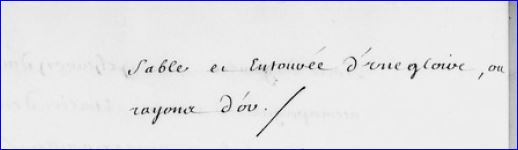 Sable et Entourée d'une gloire, ou
rayons d'or. /